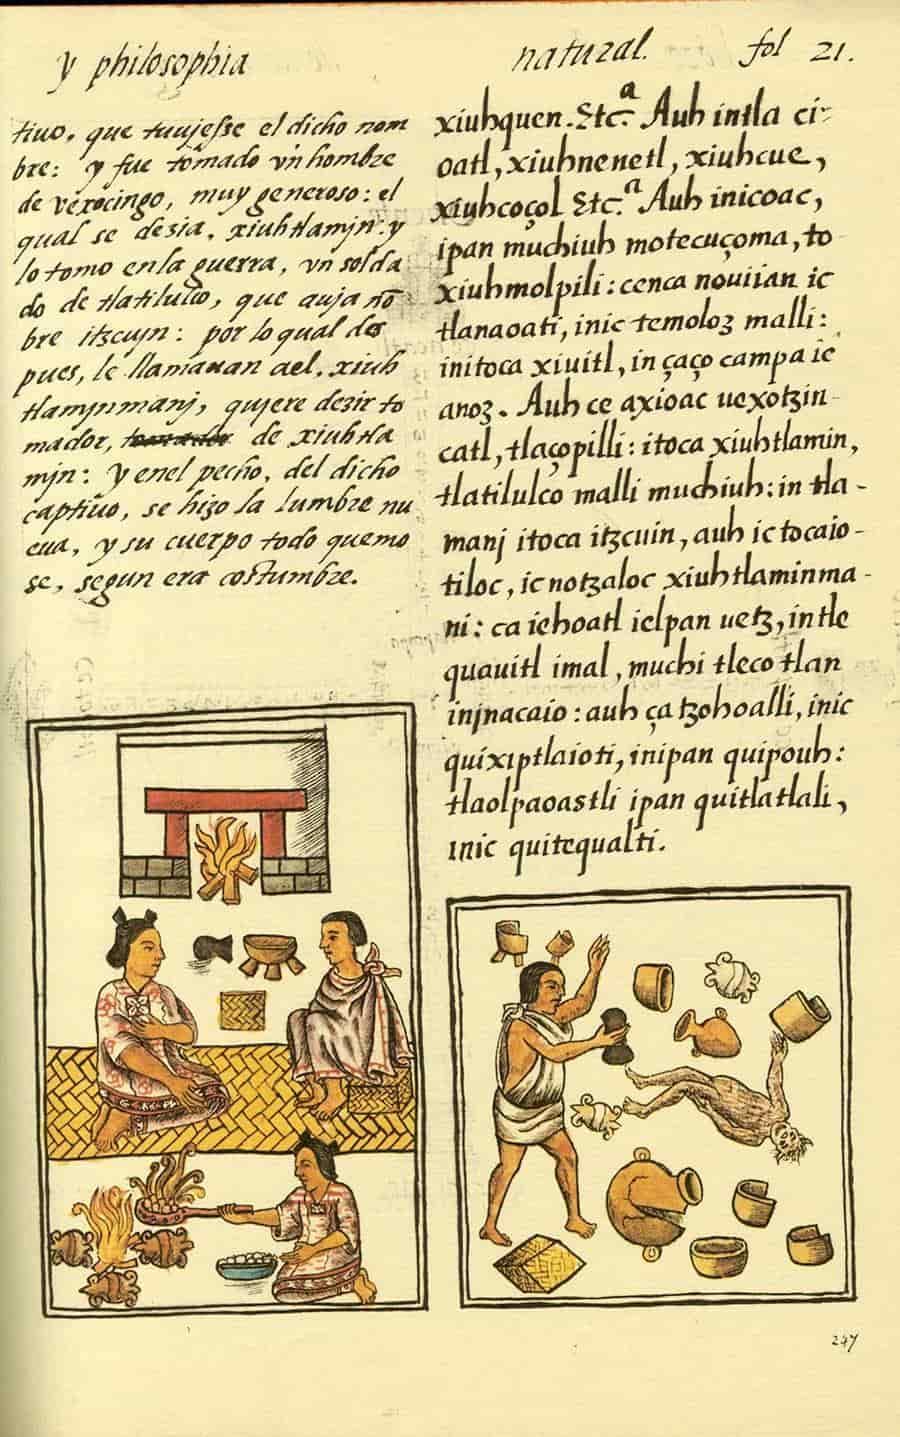 y philosophia
natural.
fol 21.
tiuo, que tuuiesse el dicho nom
bre: y fue tomado vn hombre
de vexocingo, muy generoso: el
qual se dezia, xiuhtlamjn: y
lo tomo en la guerra, vn solda
do de tlatilulco, que auja nō
bre itzcujn: por lo qual des
pues, le llamauan ael, xiuh
tlamjnmanj, qujere dezir to
mador, de xiuhtla
mjn: y en el pecho, del dicho
captiuo, se hizo la lumbre nu
eua, y su cuerpo todo quemo
se, segun era costumbre.
xiuhquen. Etc.ª Auh intla ci-
oatl, xiuhnenetl, xiuhcue,
xiuhcoçol Etc.ª Auh inicoac,
ipan muchiuh motecuçoma, to
xiuhmolpili: cenca nouiian ic
tlanaoati, inic temoloz malli:
initoca xiuitl, in çaço campa ic
anoz. Auh ce axioac uexotzin-
catl, tlaçopilli: itoca xiuhtlamin,
tlatilulco malli muchiuh: in tla-
manj itoca itzcuin, auh ic tocaio-
tiloc, ic notzaloc xiuhtlaminma-
ni: ca iehoatl ielpan uetz, in tle
quauitl imal, muchi tleco tlan
injnacaio: auh ça tzohoalli, inic
quixiptlaioti, inipan quipouh:
tlaolpaoastli ipan quitlatlali,
inic quitequalti.
247